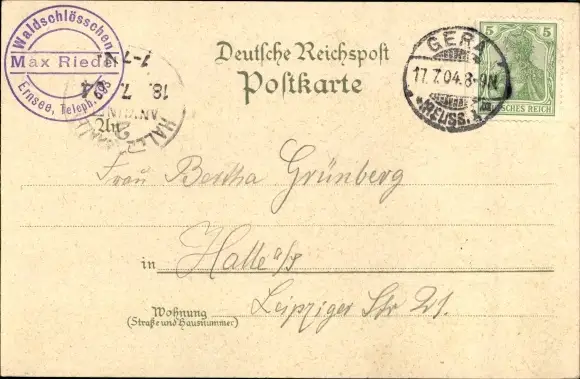 Waldschlösschen
Max Riedel
Ernsee, Teleph.
Deutsche Reichspost
Postkarte
GERA
17.7.04.8-9N.
*REUSS.*
5 5
DEUTSCHES REICH
1-7
18. 7. 04
HALLE
An
Frau Bertha Grünberg
in Halle a/S
Leipziger Str 21.
Wohnung
(Straße und Hausnummer)